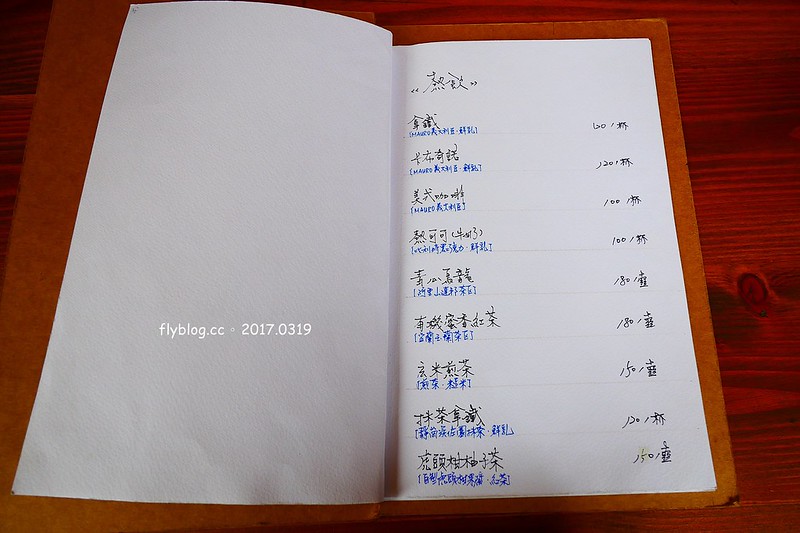 flyblog.cc。2017.0319
“熱飲”
拿鐵 120/杯
[MAURO義大利豆·鮮乳]
卡布奇諾 120/杯
[MAURO義大利豆·鮮乳]
美式咖啡 100/杯
[MAURO義大利豆]
熱可可(牛奶) 100/杯
[比利時黑巧克力·鮮乳]
青心烏龍 180/壺
茶區]
有機蜜香紅茶 180/壺
[宜蘭玉蘭茶區]
玄米煎茶 150/壺
[煎茶·糙米]
抹茶拿鐵 120/杯
[靜岡 抹茶·鮮乳]
虎頭柑柚子茶 150/壺
[自製虎頭柑 ·紅茶]